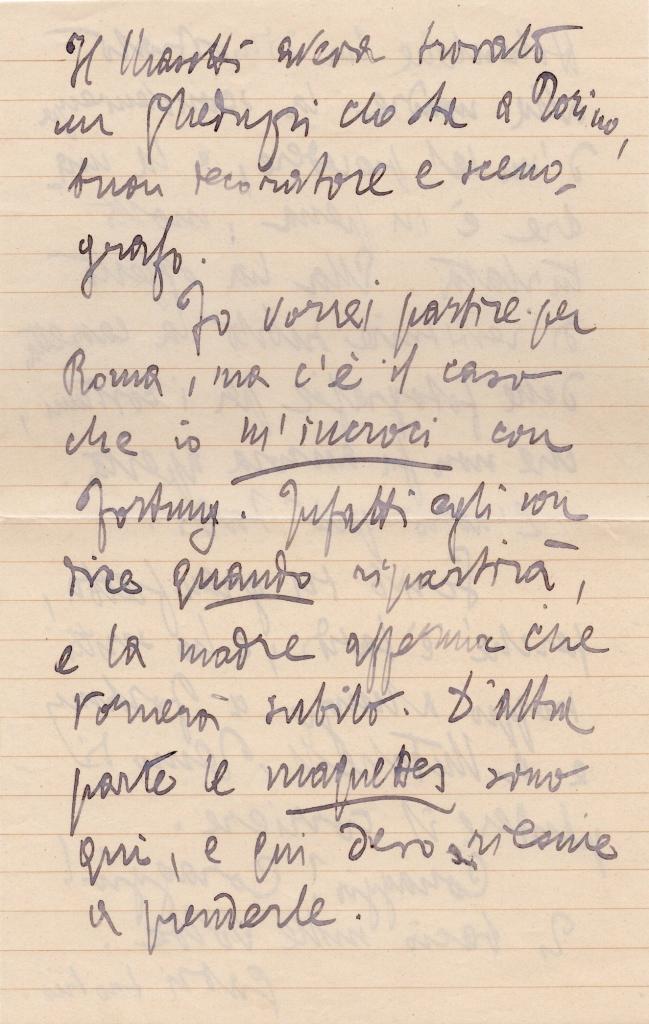 Il Masotti aveva trovato
un Gheduzzi che sta a Torino,
buon decoratore e sceno-
grafo.
Io vorrei partire per
Roma, ma c'è il caso
che io m'incroci con
Fortuny. Infatti egli non
dice quando ripartirà,
e la madre afferma che
tornerà subito. D'altra
parte le maquettes sono
qui, e qui devo
a prenderle.